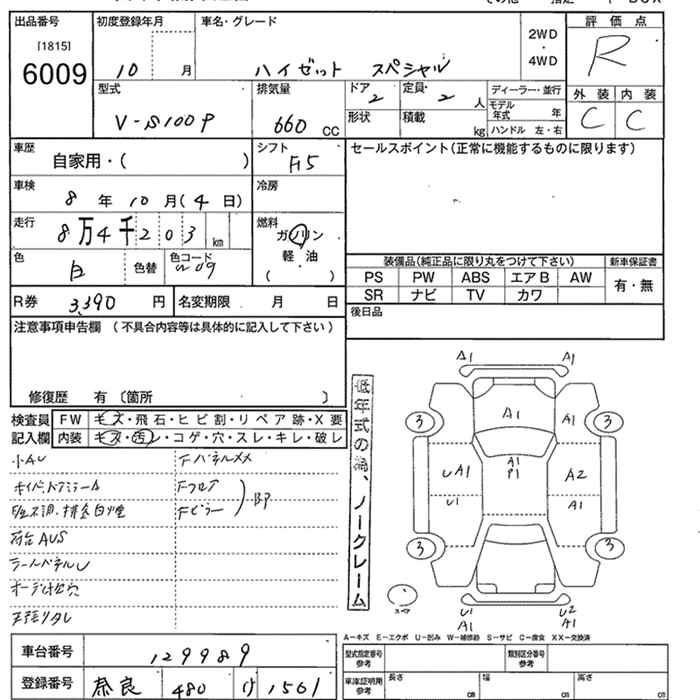 出品番号
[1815]
6009
初度登録年月
10 月
車名・グレード
ハイゼット スペシャル
2WD
・
4WD
評価点
R
外装 内装
C C
型式
V-S100P
排気量
660 CC
ドア
2
定員
2 人
形状
積載
kg
ディーラー・並行
モデル年式 年
ハンドル 左・右
車歴
自家用・( )
シフト
F5
セールスポイント(正常に機能するものに限ります)
車検
8 年 10 月 (4 日)
冷房
走行
8万4千203 km
燃料
ガソリン
軽油
( )
色
白
色替
色コード
W09
装備品(純正品に限り丸をつけて下さい)
PS PW ABS エアB AW
SR ナビ TV カワ
新車保証書
有・無
R券
3,390 円
名変期限 月 日
後日品
注意事項申告欄 (不具合内容等は具体的に記入して下さい)
修復歴 有 〔箇所 〕
検査員
記入欄
FW キズ・飛石・ヒビ割・リペア跡・X要
内装 キズ・汚レ・コゲ・穴・スレ・キレ・破レ
小AU
FパネルXX
Fフロア
Fピラー
BP
荷台AUS
低年式の為、ノークレーム
A1 A1
A1
A1
3 3
UA1
A1
P1
A2
U1
A1
3 3
スペア
U1
A1
U2
A1
A-キズ E-エクボ U-凹み W-補修跡 S-サビ C-腐食 XX-交換済
車台番号
129989
登録番号
奈良 480 け 1501
型式指定番号
参考
類別区分番号
参考
車庫証明用
参考
長さ cm
幅 cm
高さ cm